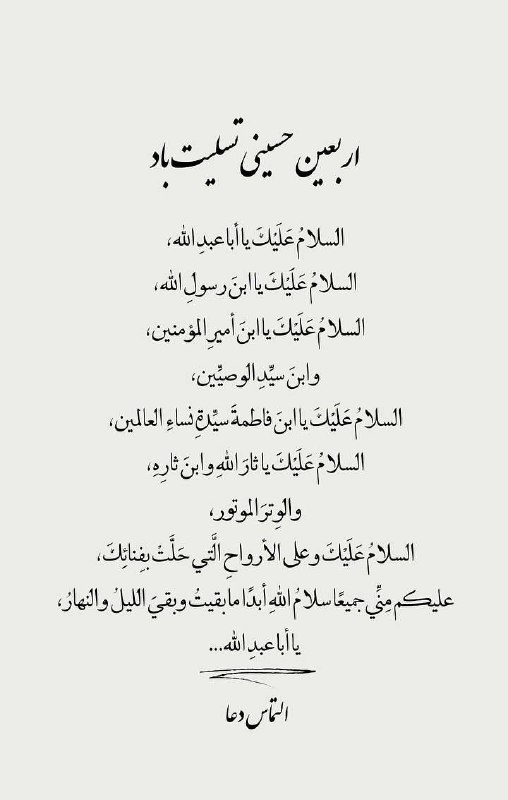 اربعین حسینی تسلیت باد
السلامُ عَلَيْكَ يا أبا عبدِ الله،
السلامُ عَلَيْكَ يا ابنَ رسولِ الله،
السلامُ عَلَيْكَ يا ابنَ أميرِ المؤمنين،
وابنَ سيِّدِ الوصيِّين،
السلامُ عَلَيْكَ يا ابنَ فاطمةَ سيِّدةِ نساءِ العالمين،
السلامُ عَلَيْكَ يا ثارَ اللهِ وابنَ ثارِهِ،
والوِترَ الموتور،
السلامُ عَلَيْكَ وعلى الأرواحِ الَّتي حَلَّتْ بفِنائِكَ،
عليكم مِنِّي جميعًا سلامُ اللهِ أبدًا ما بقيتُ وبقيَ الليلُ والنهارُ،
يا أبا عبدِ الله...
التماس دعا